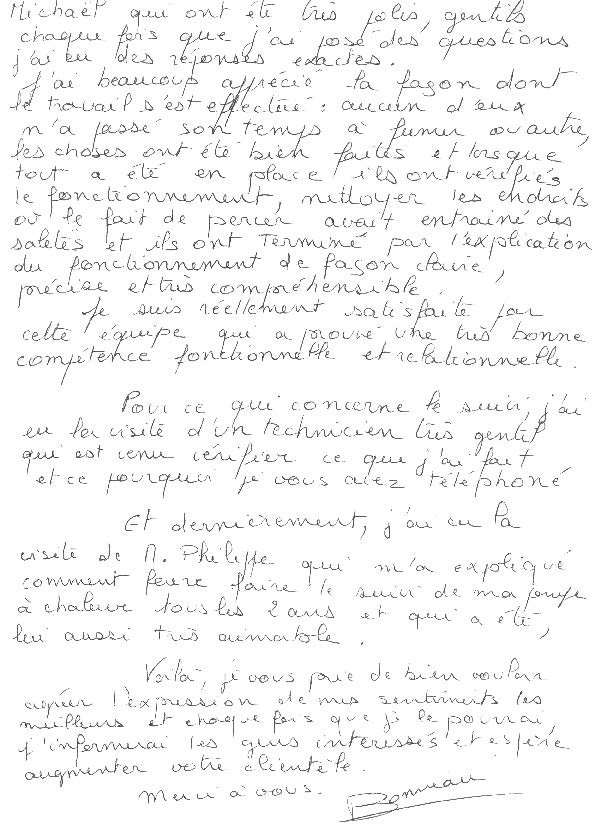 Michaël qui ont été très jolis, gentils
chaque fois que j'ai posé des questions
j'ai eu des réponses exactes.
J'ai beaucoup apprécié la façon dont
le travail s'est effectué : aucun d'eux
n'a passé son temps à fumer ou autre,
les choses ont été bien faites et lorsque
tout a été en place ils ont vérifiés
le fonctionnement, nettoyer les endroits
où le fait de percer avait entrainé des
saletés et ils ont terminé par l'explication
du fonctionnement de façon claire,
précise et très compréhensible.
Je suis réellement satisfaite par
cette équipe qui a prouvé une très bonne
compétence fonctionnelle et relationnelle.
Pour ce qui concerne le suivi, j'ai
eu la visite d'un technicien très gentil
qui est venu vérifier ce que j'ai fait
et ce pourquoi je vous avez téléphoné
Et dernièrement, j'ai eu la
visite de M. Philippe qui m'a expliqué
comment faire le suivi de ma pompe
à chaleur tous les 2 ans et qui a été,
lui aussi très aimable.
Voilà, je vous prie de bien vouloir
agréer l'expression de mes sentiments les
meilleurs et chaque fois que je le pourrai,
j'informerai les gens intéressés et espère
augmenter votre clientèle.
Merci à vous. Bonneau